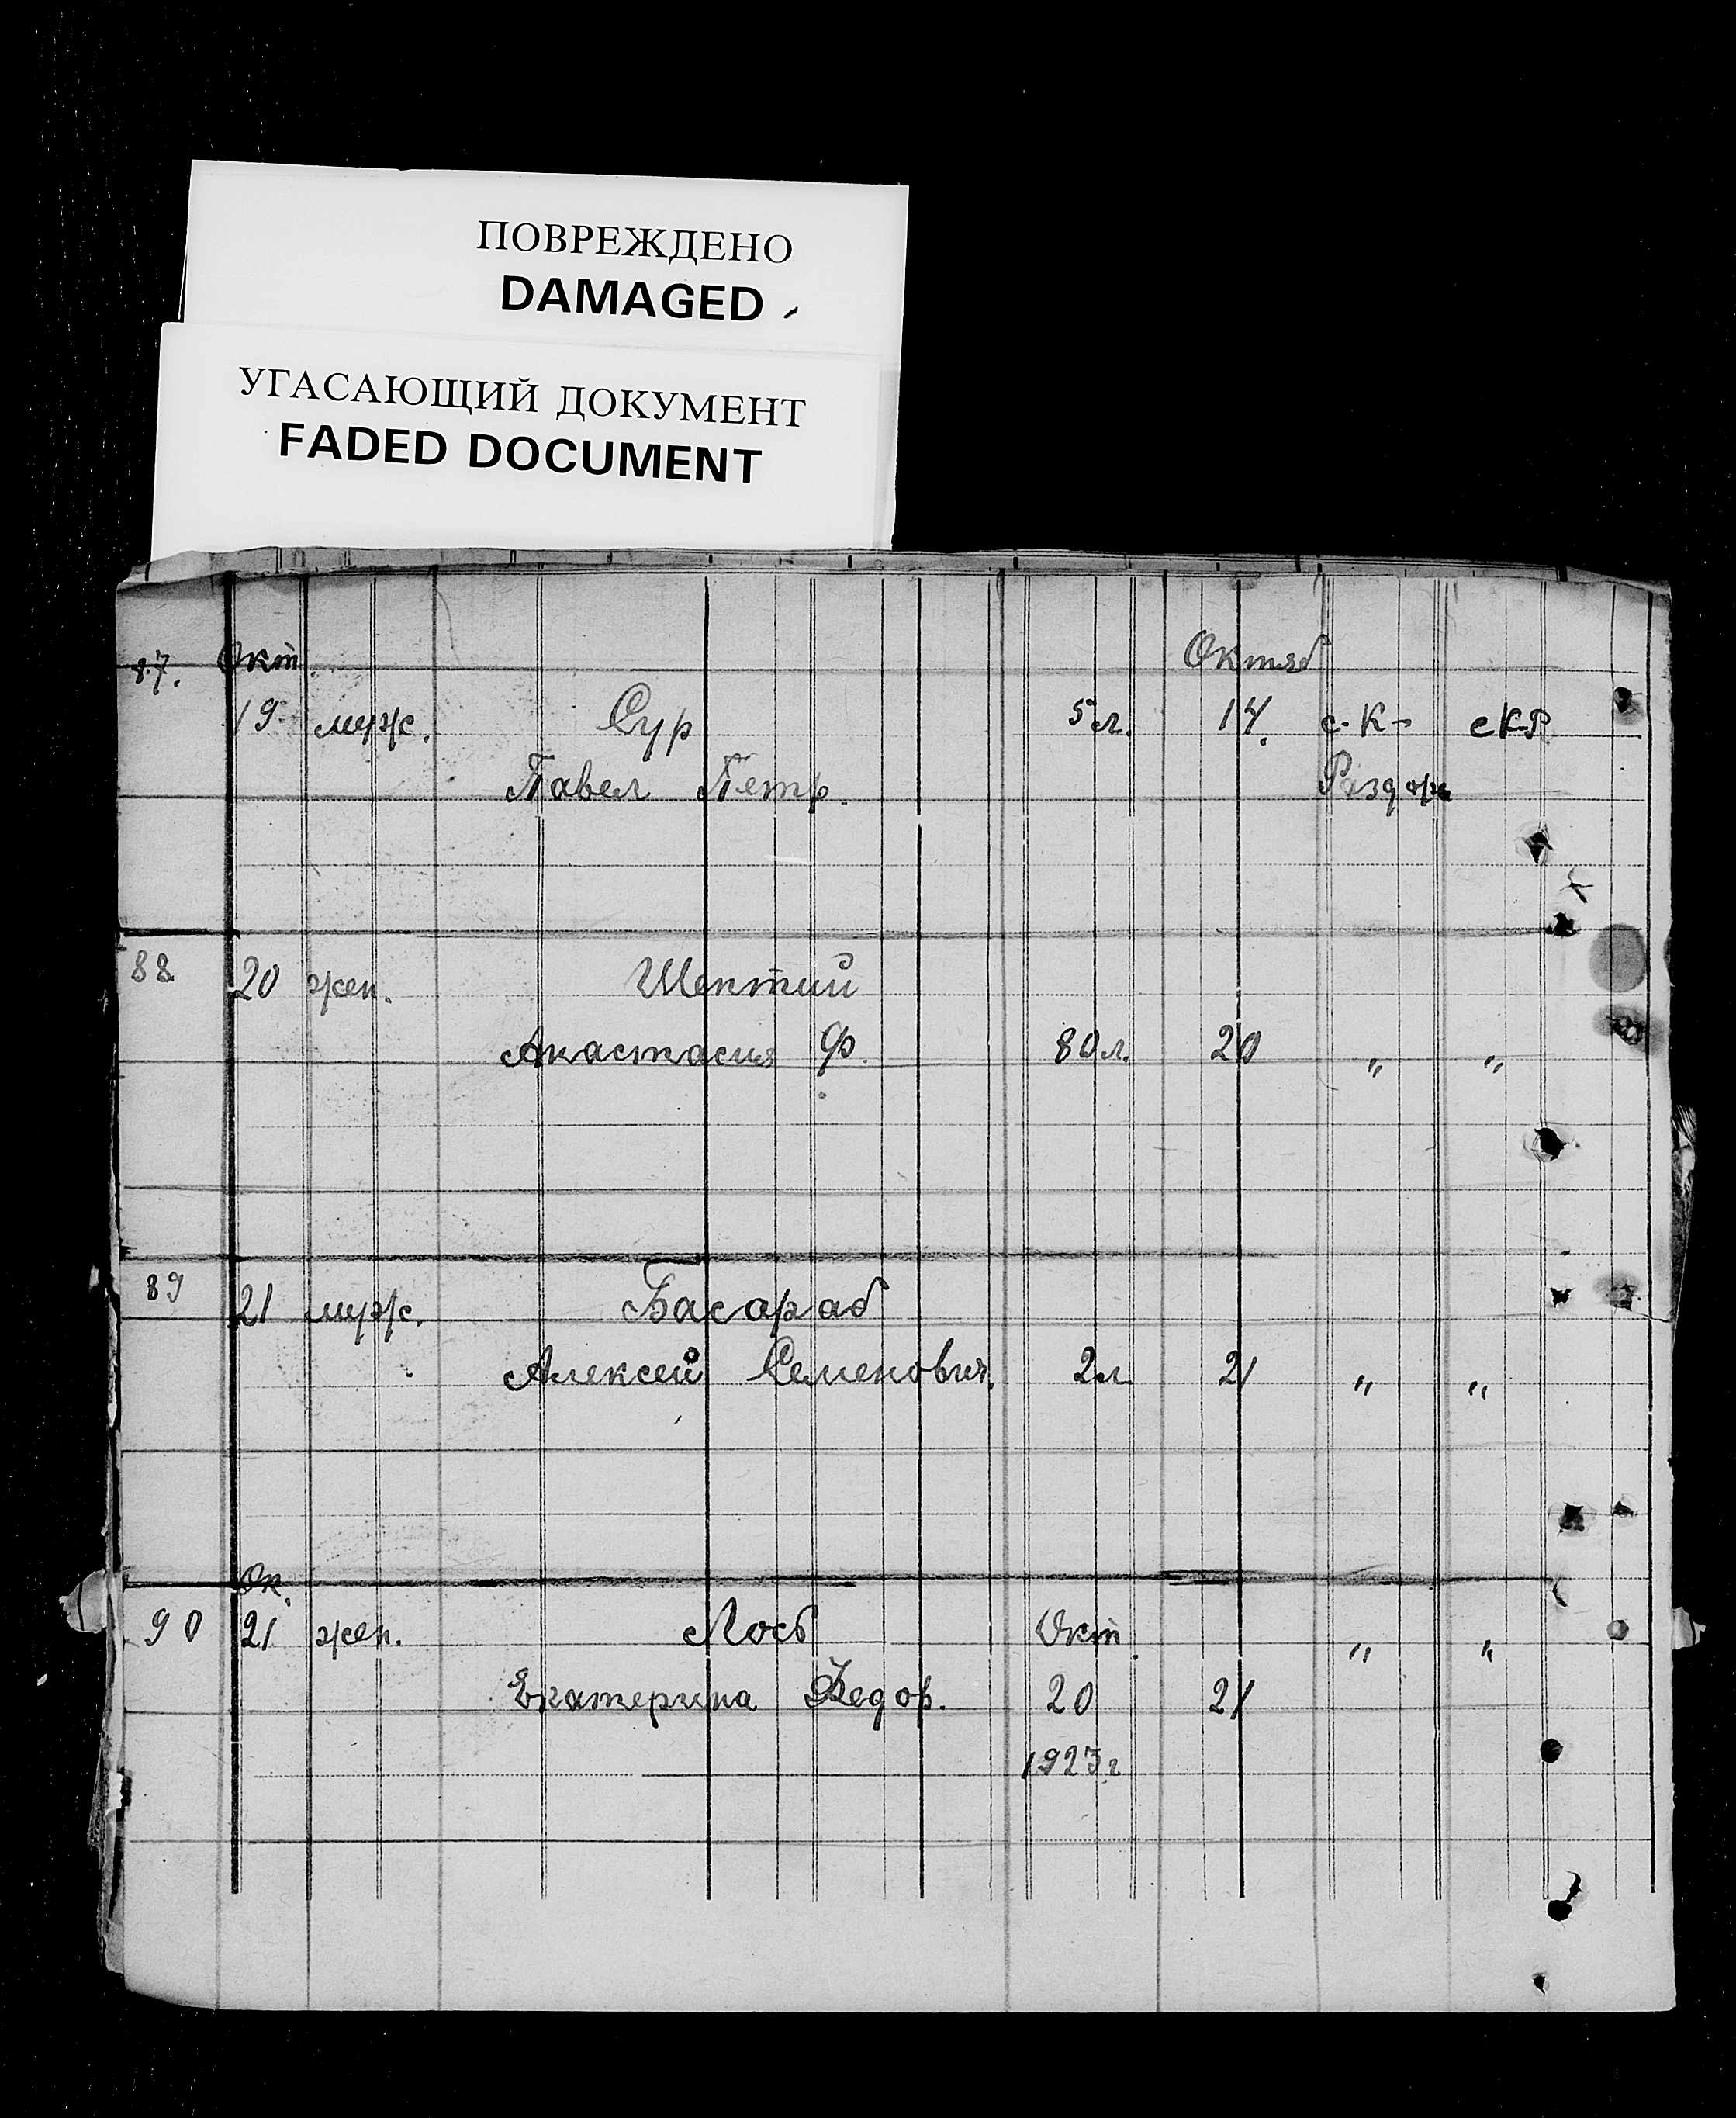 ПОВРЕЖДЕНО
DAMAGED
УГАСАЮЩИЙ ДОКУМЕНТ
FADED DOCUMENT
87. Окт. Октяб
19 муж. Сур 5 л. 14. с. К- с К-Р
Павел Петр. Раздоры
88 20 жен. Шептий
Анастасия Ф. 80 л. 20 " "
89 21 муж. Басараб
Алексей Семенович. 2 л 21 " "
Ок.
90 21 жен. Лось Окт. " "
Екатерина Федор. 20 21
1923 г